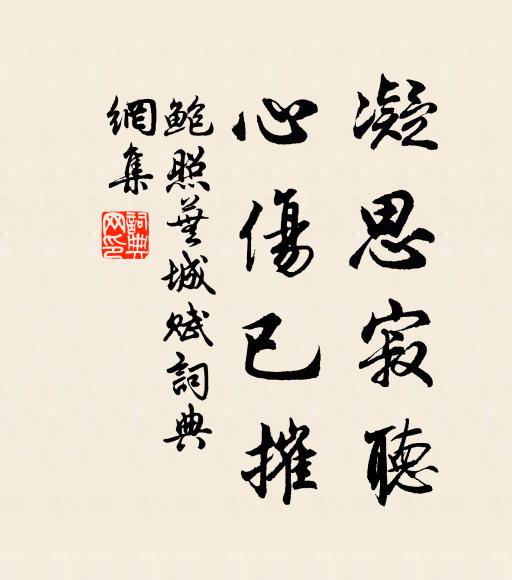 凝思寂聽
心傷已摧
鮑照蕪城賦詞典
網集
詞典網印